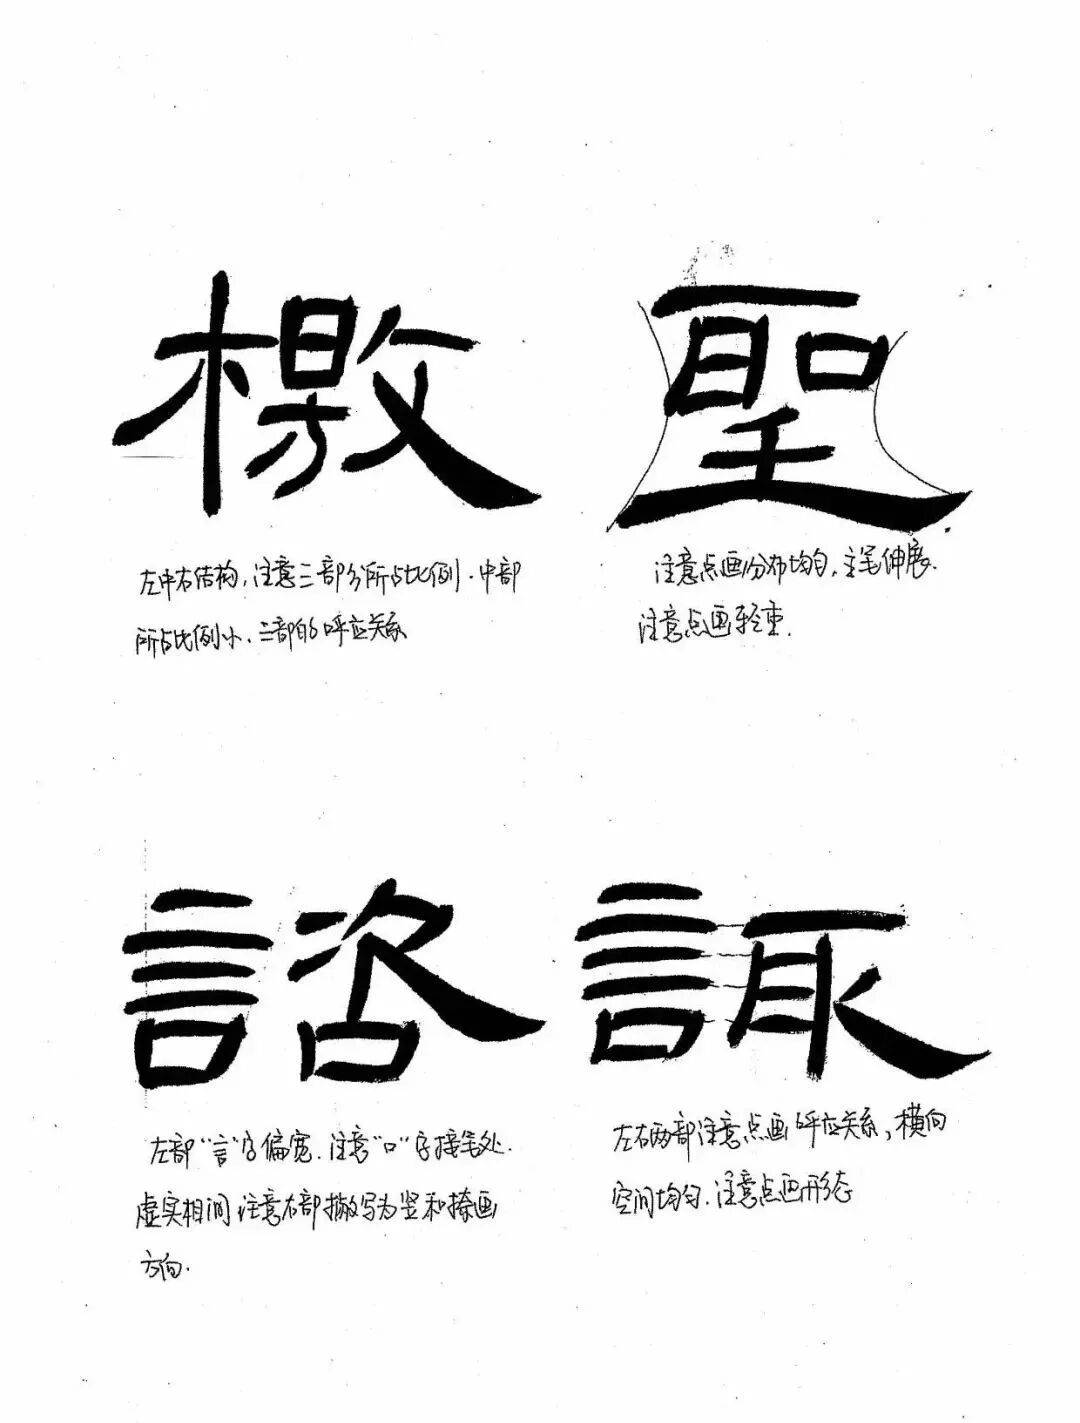 檄
左中右结构,注意三部分所占比例.中部
所占比例小,三部的呼应关系
聖
注意点画分布均匀,主笔伸展.
注意点画轻重.
諮
左部"言"字偏宽.注意"口"字接笔处.
虚实相间,注意右部撇写为竖和捺画
方向.
諏
左右两部注意点画呼应关系,横向
空间均匀.注意点画形态